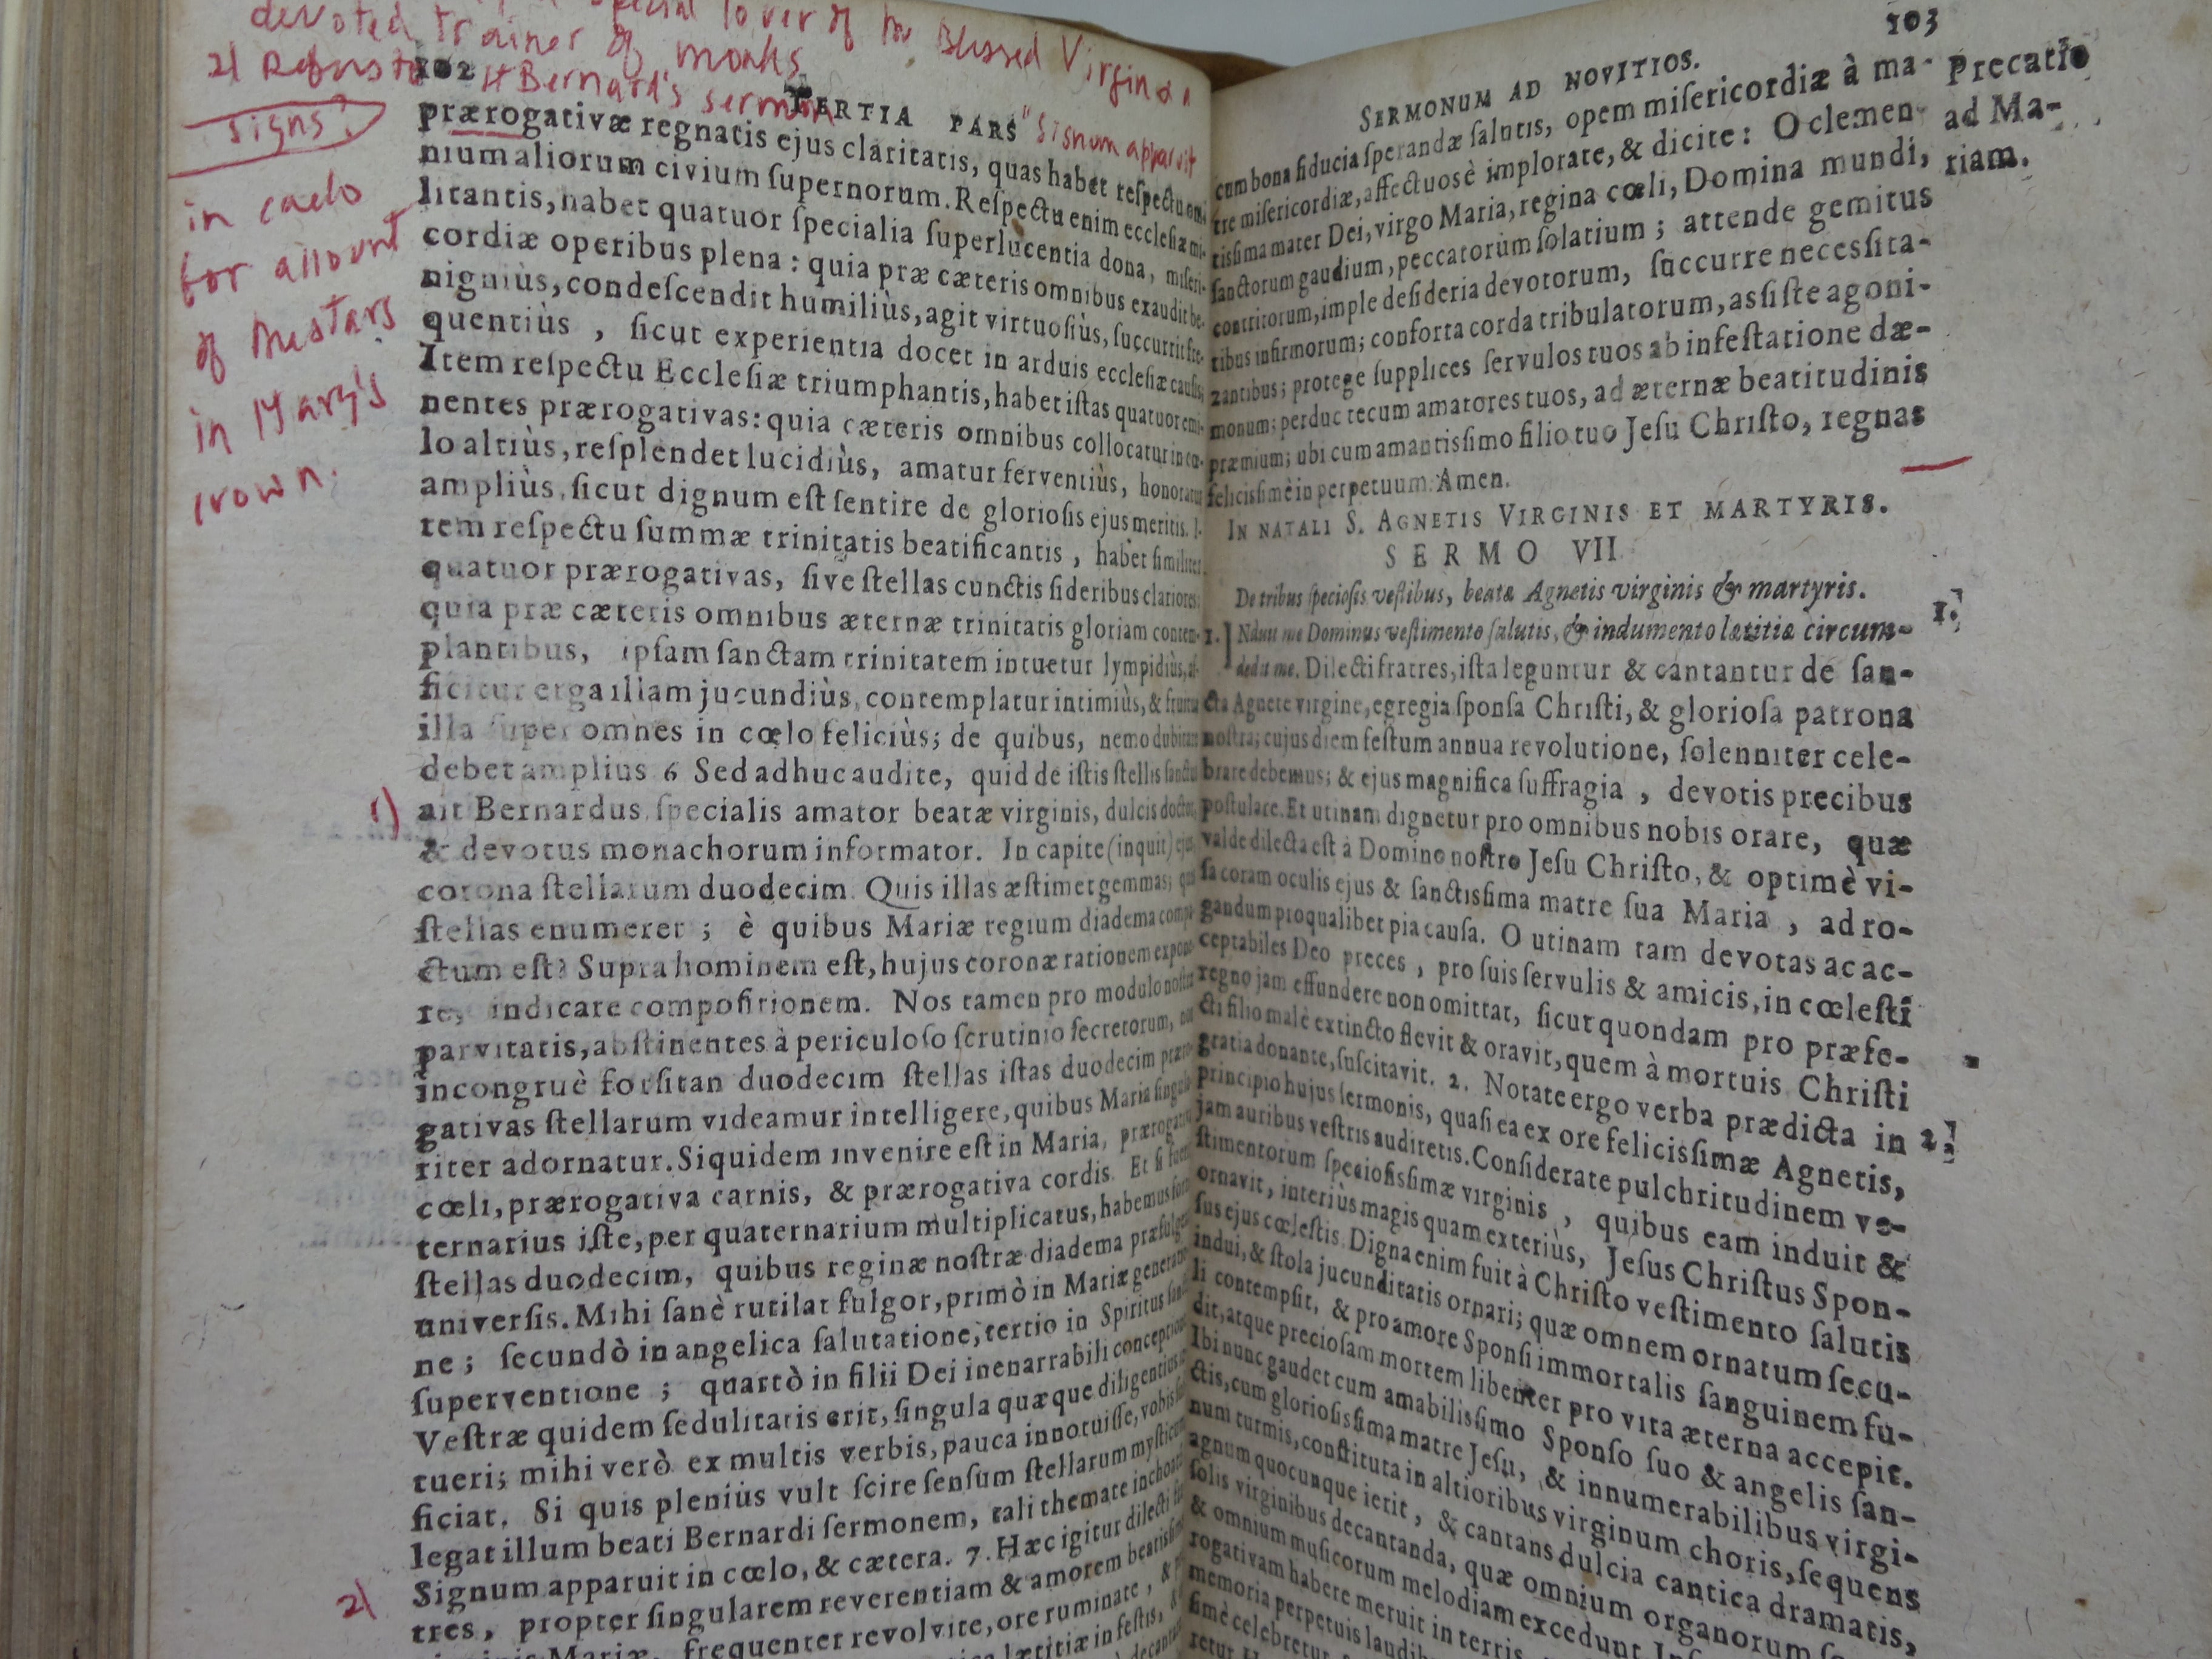 special lover of the Blessed Virgin &
devoted trainer of monks
2) Refers to St Bernard's sermon
"Signum apparuit
signs?
in caelo
for account
of the stars
in Mary's
crown.
1)
2)
102
TERTIA PARS
prærogativæ regnatis ejus claritatis, quas habet respectu om-
nium aliorum civium supernorum. Respectu enim ecclesiæ mi-
litantis, habet quatuor specialia superlucentia dona, miseri-
cordiæ operibus plena: quia præ cæteris omnibus exaudit be-
nigniùs, condescendit humiliùs, agit virtuosiùs, succurrit fre-
quentiùs, sicut experientia docet in arduis ecclesiæ causis.
Item respectu Ecclesiæ triumphantis, habet istas quatuor emi-
nentes prærogativas: quia cæteris omnibus collocatur in cœ-
lo altiùs, resplendet lucidiùs, amatur ferventiùs, honoratur
ampliùs, sicut dignum est sentire de gloriosis ejus meritis. I-
tem respectu summæ trinitatis beatificantis, habet similiter
quatuor prærogativas, sive stellas cunctis sideribus clariores:
quia præ cæteris omnibus æternæ trinitatis gloriam contem-
plantibus, ipsam sanctam trinitatem intuetur lympidiùs, af-
ficitur erga illam jucundiùs, contemplatur intimiùs, & fruitur
illa super omnes in cœlo feliciùs; de quibus, nemo dubitare
debet amplius 6 Sed adhuc audite, quid de istis stellis sanctus
ait Bernardus specialis amator beatæ virginis, dulcis doctor,
& devotus monachorum informator. In capite (inquit) ejus
corona stellarum duodecim. Quis illas æstimet gemmas; quis
stellas enumeret; è quibus Mariæ regium diadema compa-
ctum est? Supra hominem est, hujus coronæ rationem expone-
re, indicare compositionem. Nos tamen pro modulo nostræ
parvitatis, abstinentes à periculoso scrutinio secretorum, non
incongruè forsitan duodecim stellas istas duodecim præro-
gativas stellarum videamur intelligere, quibus Maria singula-
riter adornatur. Siquidem invenire est in Maria, prærogativa
cœli, prærogativa carnis, & prærogativa cordis. Et si fuerit
ternarius iste, per quaternarium multiplicatus, habemus
stellas duodecim, quibus reginæ nostræ diadema præfulget
universis. Mihi sanè rutilat fulgor, primò in Mariæ generatio-
ne; secundò in angelica salutatione; tertio in Spiritus sancti
superventione; quartò in filii Dei inenarrabili conceptione
Vestræ quidem sedulitatis erit, singula quæque diligentius in-
tueri; mihi verò ex multis verbis, pauca innotuisse, vobis suf-
ficiat. Si quis pleniùs vult scire sensum stellarum mysticum
legat illum beati Bernardi sermonem, tali themate inchoat
Signum apparuit in cœlo, & cætera. 7. Hæc igitur dilecti fra-
tres, propter singularem reverentiam & amorem beatissimæ
Mariæ, frequenter revolvite, ore ruminate, &
lætitiæ in festis,
103
SERMONUM AD NOVITIOS.
Precatio
ad Ma-
riam.
cum bona fiducia sperandæ salutis, opem misericordiæ à ma-
tre misericordiæ, affectuosè implorate, & dicite: O clemen-
tissima mater Dei, virgo Maria, regina cœli, Domina mundi,
sanctorum gaudium, peccatorum solatium; attende gemitus
contritorum, imple desideria devotorum, succurre necessita-
tibus infirmorum; conforta corda tribulatorum, assiste agoni-
zantibus; protege supplices servulos tuos ab infestatione dæ-
monum: perduc tecum amatores tuos, ad æternæ beatitudinis
præmium; ubi cum amantissimo filio tuo Jesu Christo, regnas
felicissimè in perpetuum. Amen.
IN NATALI S. AGNETIS VIRGINIS ET MARTYRIS.
SERMO VII
De tribus speciosis vestibus, beatæ Agnetis virginis & martyris.
1.
1. Nduit me Dominus vestimento salutis, & indumento lætitiæ circum-
dedit me. Dilecti fratres, ista leguntur & cantantur de san-
cta Agnete virgine, egregia sponsa Christi, & gloriosa patrona
nostra; cujus diem festum annua revolutione, solenniter cele-
brare debemus; & ejus magnifica suffragia, devotis precibus
postulare. Et utinam dignetur pro omnibus nobis orare, quæ
valde dilecta est à Domino nostro Jesu Christo, & optimè vi-
sa coram oculis ejus & sanctissima matre sua Maria, ad ro-
gandum pro qualibet pia causa. O utinam tam devotas ac ac-
ceptabiles Deo preces, pro suis servulis & amicis, in cœlesti
regno jam effundere non omittat, sicut quondam pro præfe-
cti filio malè extincto flevit & oravit, quem à mortuis Christi
gratia donante, suscitavit. 2. Notate ergo verba prædicta in
2.
principio hujus sermonis, quasi ea ex ore felicissimæ Agnetis,
jam auribus vestris audiretis. Considerate pulchritudinem ve-
stimentorum speciosissimæ virginis, quibus eam induit &
ornavit, interiùs magis quam exteriùs, Jesus Christus Spon-
sus ejus cœlestis. Digna enim fuit à Christo vestimento salutis
indui, & stola jucunditatis ornari; quæ omnem ornatum secu-
li contempsit, & pro amore Sponsi immortalis sanguinem fu-
dit, atque preciosam mortem libenter pro vita æterna accepit.
Ibi nunc gaudet cum amabilissimo Sponso suo & angelis san-
ctis, cum gloriosissima matre Jesu, & innumerabilibus virgi-
num turmis, constituta in altioribus virginum choris, sequens
agnum quocunque ierit, & cantans dulcia cantica dramatis,
solis virginibus decantanda, quæ omnium organorum
& omnium musicorum melodiam excedunt.
rogativam habere meruit in terris
memoria perpetuis
simè celebretur